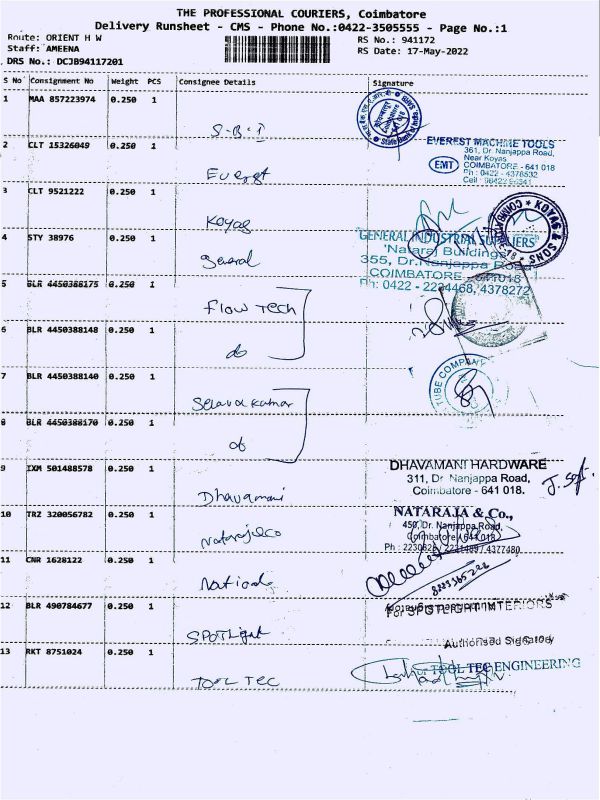 THE PROFESSIONAL COURIERS, Coimbatore
Delivery Runsheet - CMS - Phone No.:0422-3505555 - Page No.:1
Route: ORIENT H W
RS No.: 941172
Staff: AMEENA
RS Date: 17-May-2022
DRS No.: DCJB94117201
S No Consignment No Weight PCS Consignee Details Signature
1 MAA 857223974 0.250 1
S-B-I
2 CLT 15326049 0.250 1
EVEREST MACHINE TOOLS
361, Dr. Nanjappa Road,
Near Koyas
EMT COIMBATORE - 641 018
Ph : 0422 - 4378532
Everest
3 CLT 9521222 0.250 1
Koyas
KOYAS & SONS
4 STY 38976 0.250 1
General
"GENERAL INDUSTRIAL SUPPLIERS"
'Nataraj Buildings'
355, Dr.Nanjappa Road
COIMBATORE - 641018
Ph: 0422 - 2224468, 4378272
5 BLR 4450388175 0.250 1
Flow Tech
6 BLR 4450388148 0.250 1
do
7 BLR 4450388140 0.250 1
Selvakumar
TUBE COMPANY
8 BLR 4450388170 0.250 1
do
9 IXM 501488578 0.250 1
DHAVAMANI HARDWARE
311, Dr. Nanjappa Road,
Coimbatore - 641 018.
Dhavamani
10 TRZ 320056782 0.250 1
NATARAJA & Co.,
450, Dr. Nanjappa Road,
Coimbatore / 641 018
Nataraj&co
11 CNR 1628122 0.250 1
National
12 BLR 490784677 0.250 1
For SPOTLIGHT INTERIORS
SPOTLight
Authorised Signatory
13 RKT 8751024 0.250 1
For TOOL TEC ENGINEERING
TOOL TEC